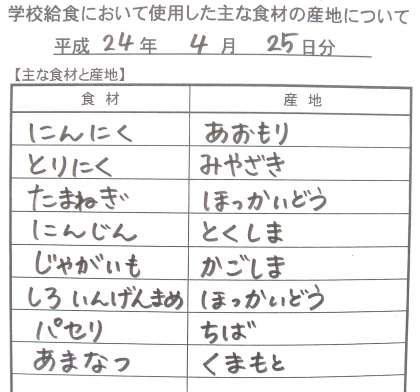 学校給食において使用した主な食材の産地について
平成 24 年 4 月 25 日分
【主な食材と産地】
食材 産地
にんにく あおもり
とりにく みやざき
たまねぎ ほっかいどう
にんじん とくしま
じゃがいも かごしま
しろいんげんまめ ほっかいどう
パセリ ちば
あまなつ くまもと